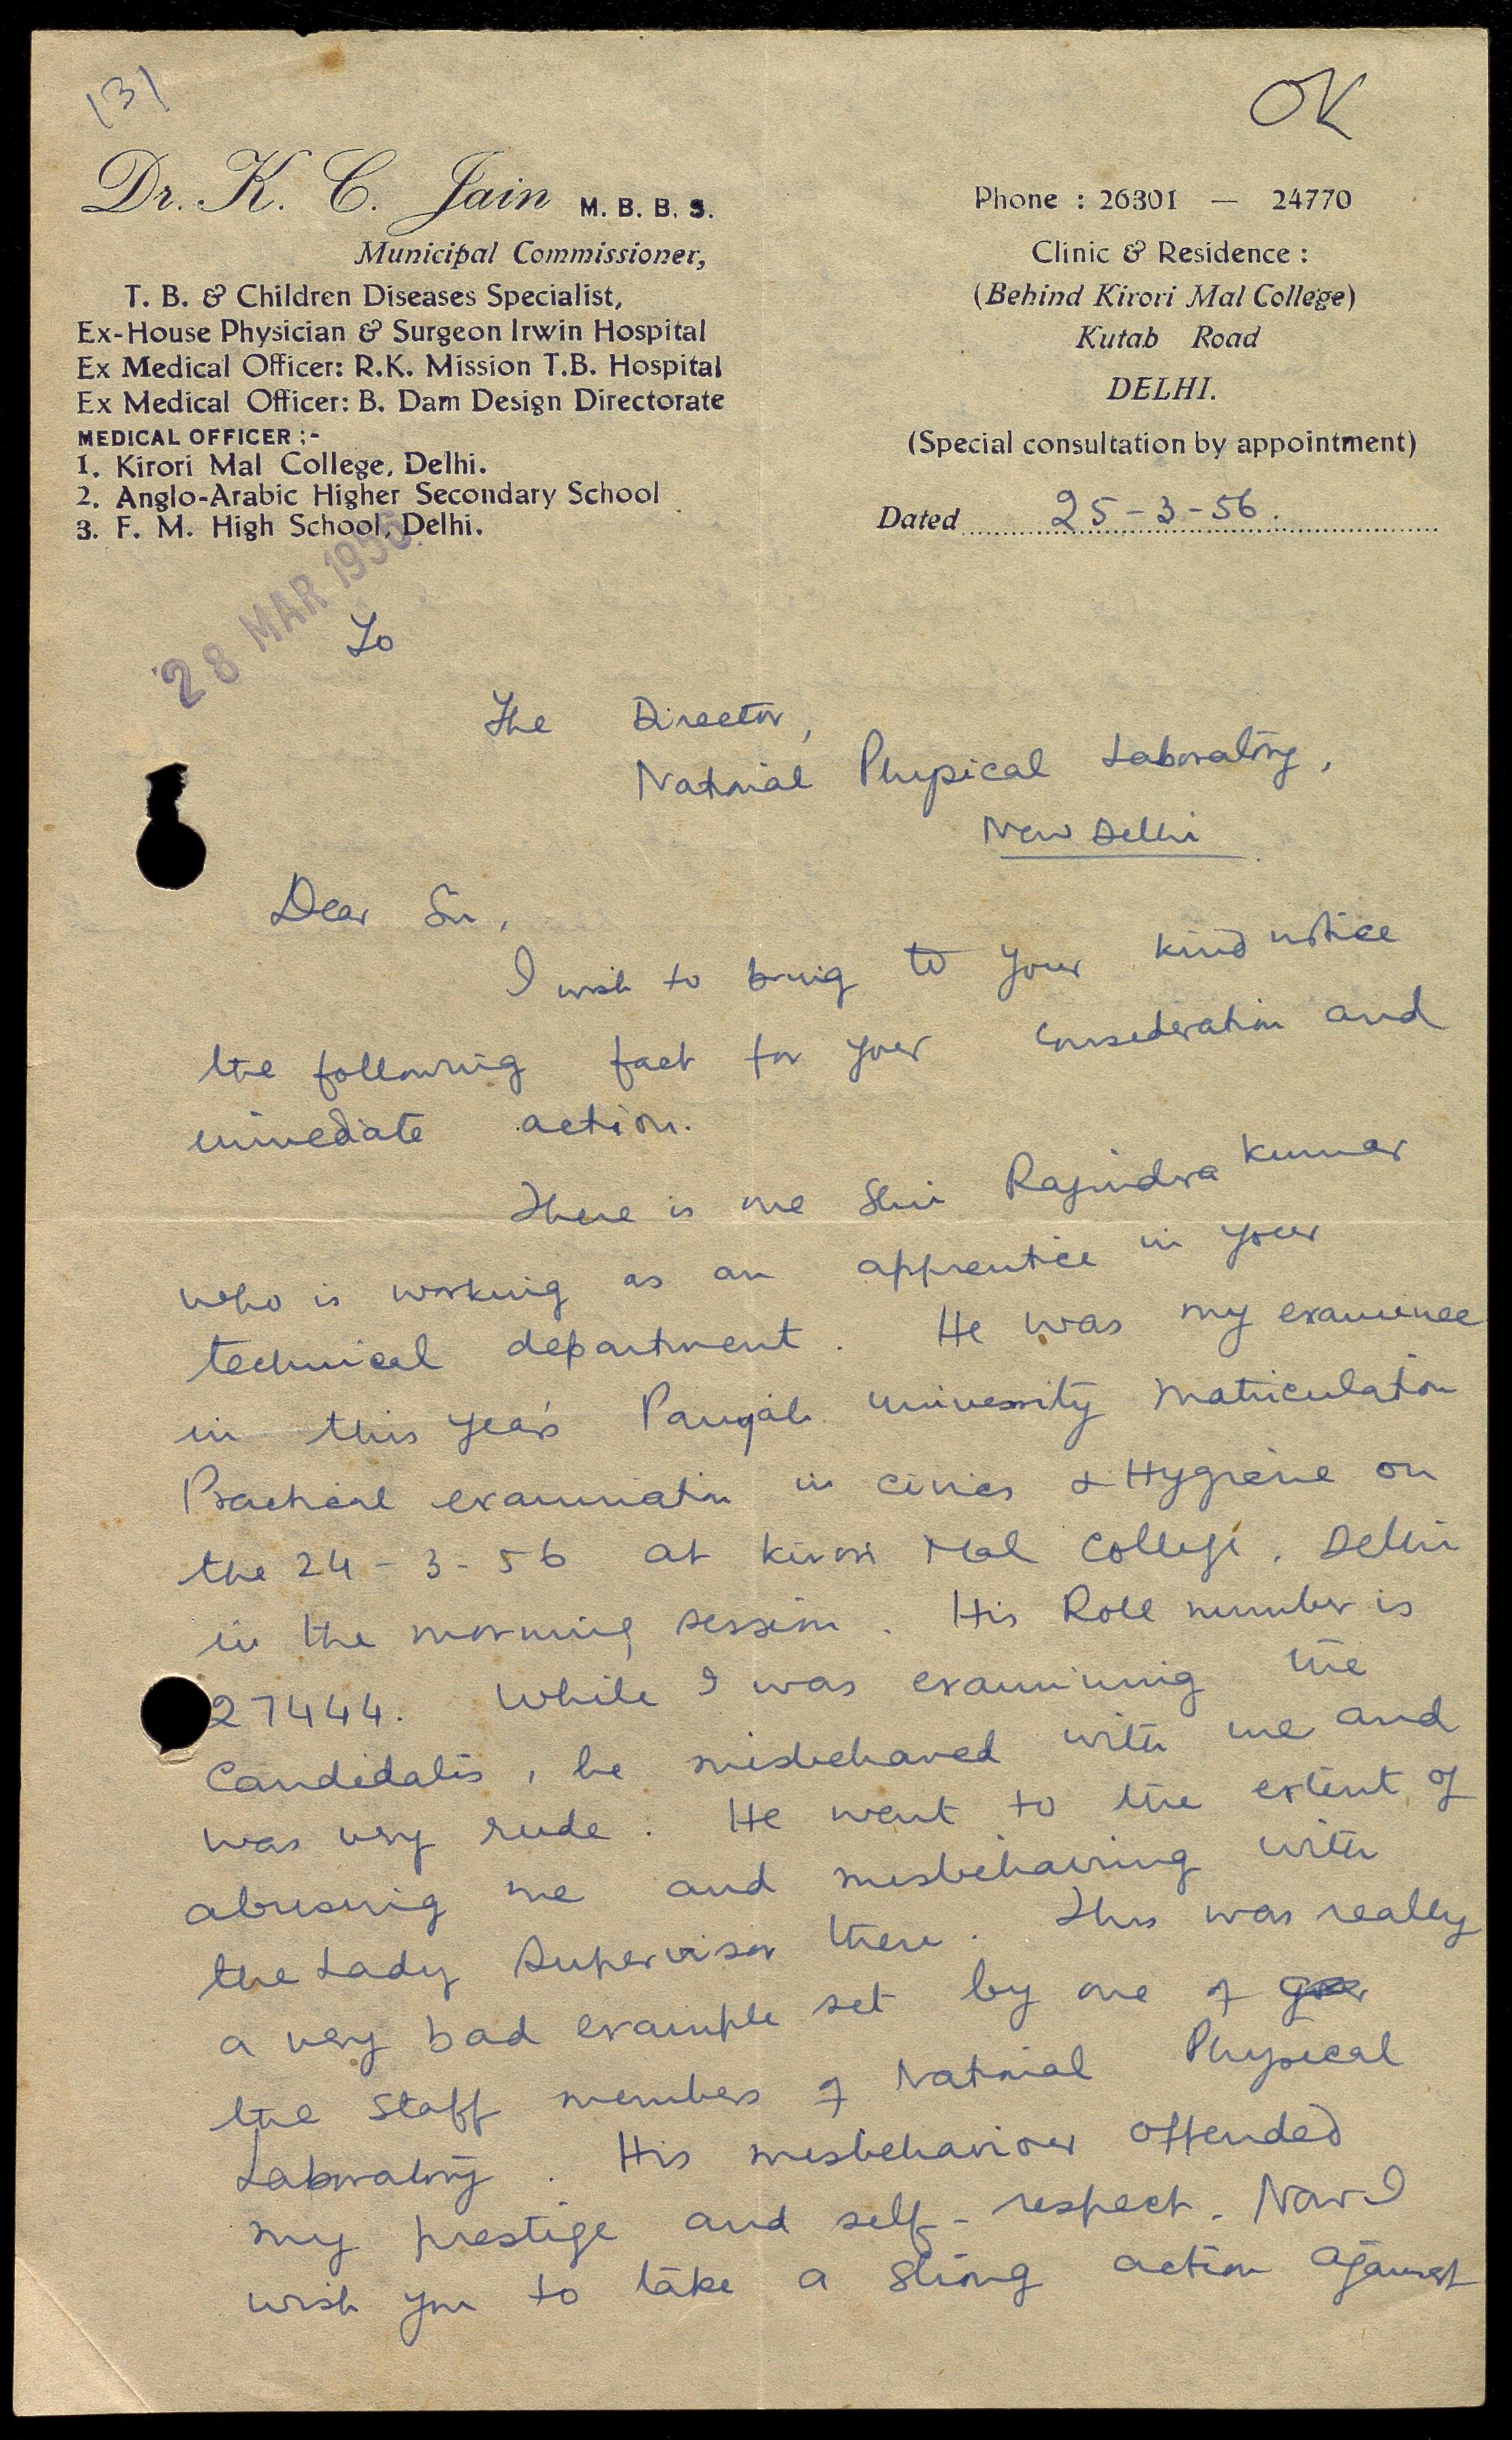 (3)
OK
Dr. K. C. Jain M. B. B. S.
Municipal Commissioner,
T. B. & Children Diseases Specialist,
Ex-House Physician & Surgeon Irwin Hospital
Ex Medical Officer: R.K. Mission T.B. Hospital
Ex Medical Officer: B. Dam Design Directorate
MEDICAL OFFICER :-
1. Kirori Mal College, Delhi.
2. Anglo-Arabic Higher Secondary School
3. F. M. High School, Delhi.
Phone : 26301 — 24770
Clinic & Residence :
(Behind Kirori Mal College)
Kutab Road
DELHI.
(Special consultation by appointment)
Dated 25-3-56.
28 MAR 1956
To
The Director,
National Physical Laboratory,
New Delhi
Dear Sir,
I wish to bring to your kind notice
the following fact for your consideration and
immediate action.
There is one Shri Rajindra Kumar
who is working as an apprentice in your
technical department. He was my examinee
in this year's Panjab University Matriculation
Practical examination in civics & Hygiene on
the 24-3-56 at Kirori Mal College, Delhi
in the morning session. His Roll number is
27444. While I was examining the
Candidates, he misbehaved with me and
was very rude. He went to the extent of
abusing me and misbehaving with
the Lady Supervisor there. This was really
a very bad example set by one of
the Staff members of National Physical
Laboratory. His misbehaviour offended
my prestige and self-respect. Now I
wish you to take a strong action against